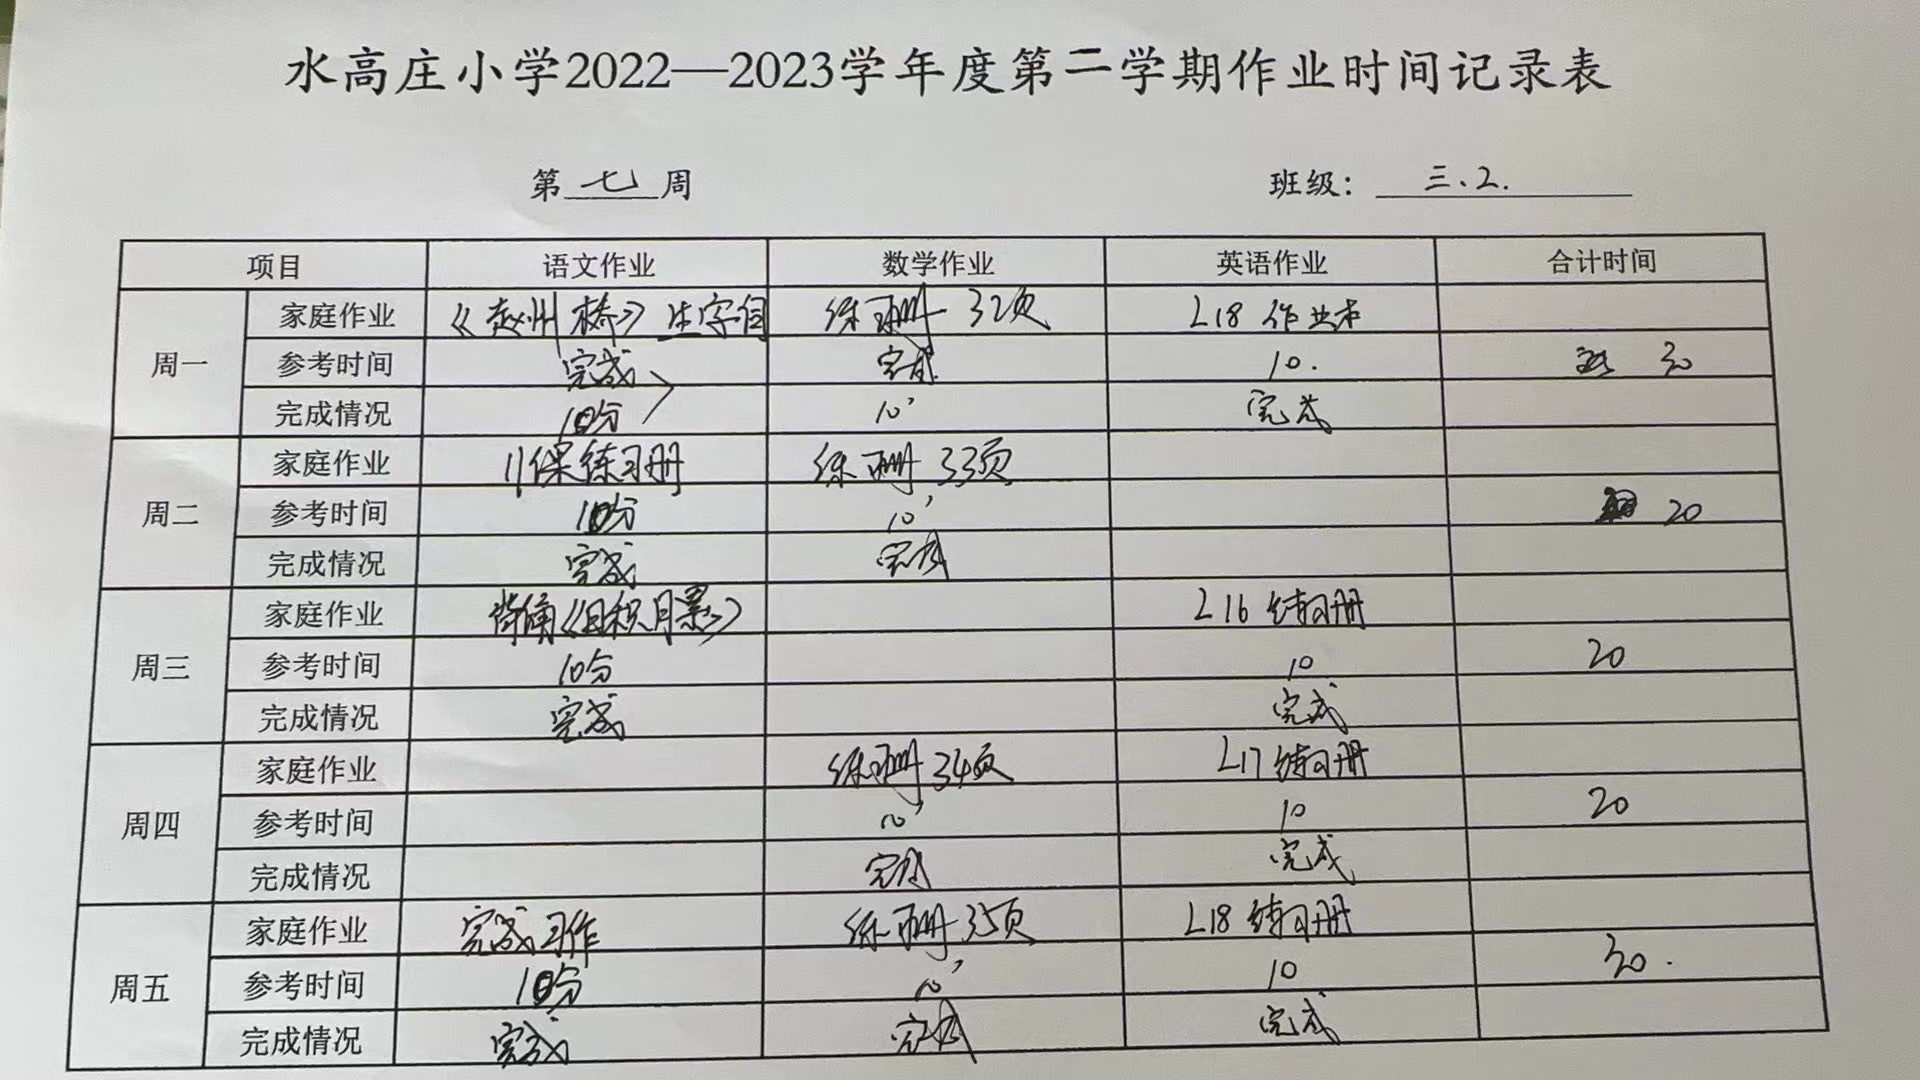 水高庄小学2022—2023学年度第二学期作业时间记录表
第 七 周 班级： 三.2.
项目 语文作业 数学作业 英语作业 合计时间
周一
家庭作业 《赵州桥》生字词 练习册32页 L18 作业本
参考时间 完成 完成 10. 30
完成情况 10分 10' 完成
周二
家庭作业 11课练习册 练习册33页
参考时间 10分 10' 20
完成情况 完成 完成
周三
家庭作业 背诵《日积月累》 L16 练习册
参考时间 10分 10 20
完成情况 完成 完成
周四
家庭作业 练习册34页 L17 练习册
参考时间 10' 10 20
完成情况 完成 完成
周五
家庭作业 完成习作 练习册35页 L18 练习册
参考时间 10分 10' 10 30.
完成情况 完成 完成 完成